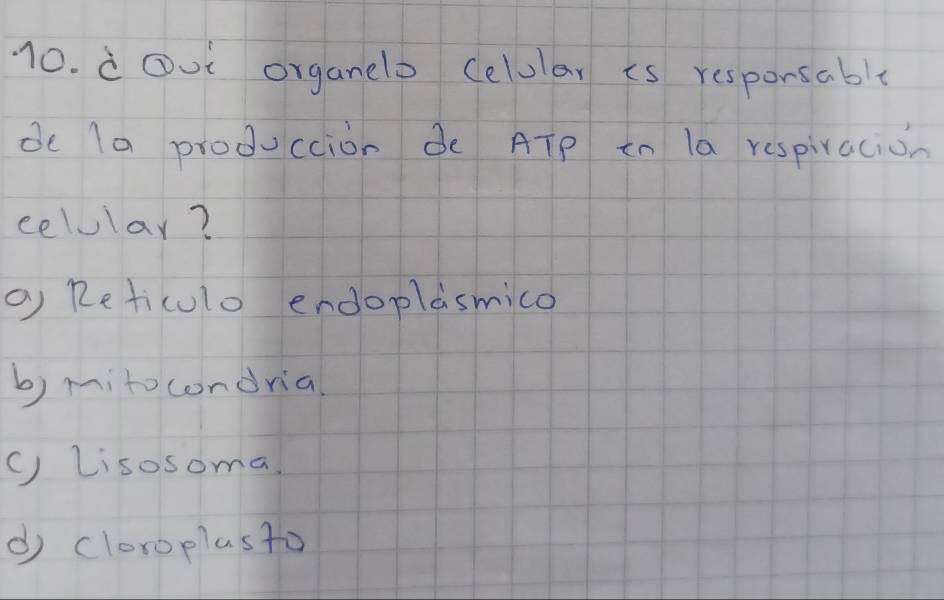 10. ¿Qué organelo celular es responsable
de la producción de ATP en la respiración
celular?
a) Reticulo endoplásmico
b) mitocondria.
c) Lisosoma.
d) cloroplasto